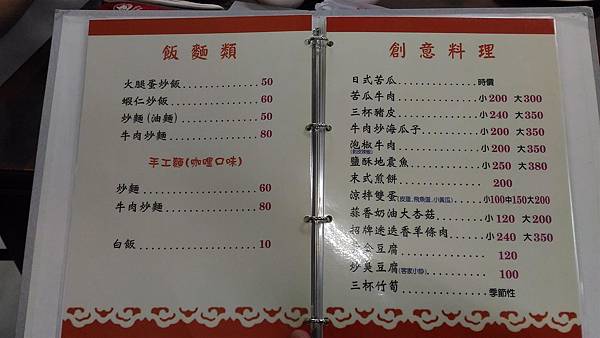 飯麵類
火腿蛋炒飯 50
蝦仁炒飯 60
炒麵(油麵) 50
牛肉炒麵 80
手工麵(咖哩口味)
炒麵 60
牛肉炒麵 80
白飯 10
創意料理
日式苦瓜 時價
苦瓜牛肉 小200 大300
三杯豬皮 小240 大350
牛肉炒海瓜子 小200 大350
泡椒牛肉 小200 大350
鹽酥地震魚 小250 大380
末式煎餅 200
涼拌雙蛋(皮蛋.飛魚蛋.小黃瓜) 小100中150大200
蒜香奶油大杏菇 小120 大200
招牌迷迭香羊條肉 小240 大350
金豆腐 120
炒臭豆腐(客家小炒) 100
三杯竹筍 季節性